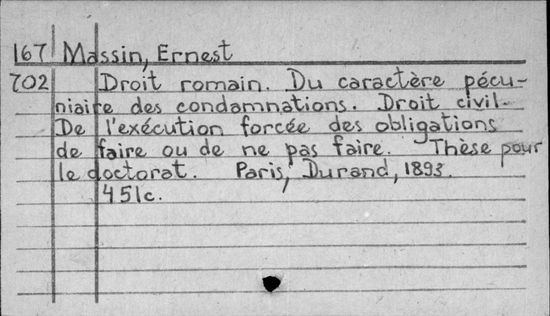 167 Massin, Ernest
702 Droit romain. Du caractère pécu-
niaire des condamnations. Droit civil-
De l'exécution forcée des obligations
de faire ou de ne pas faire. Thèse pour
le doctorat. Paris, Durand, 1893.
451c.